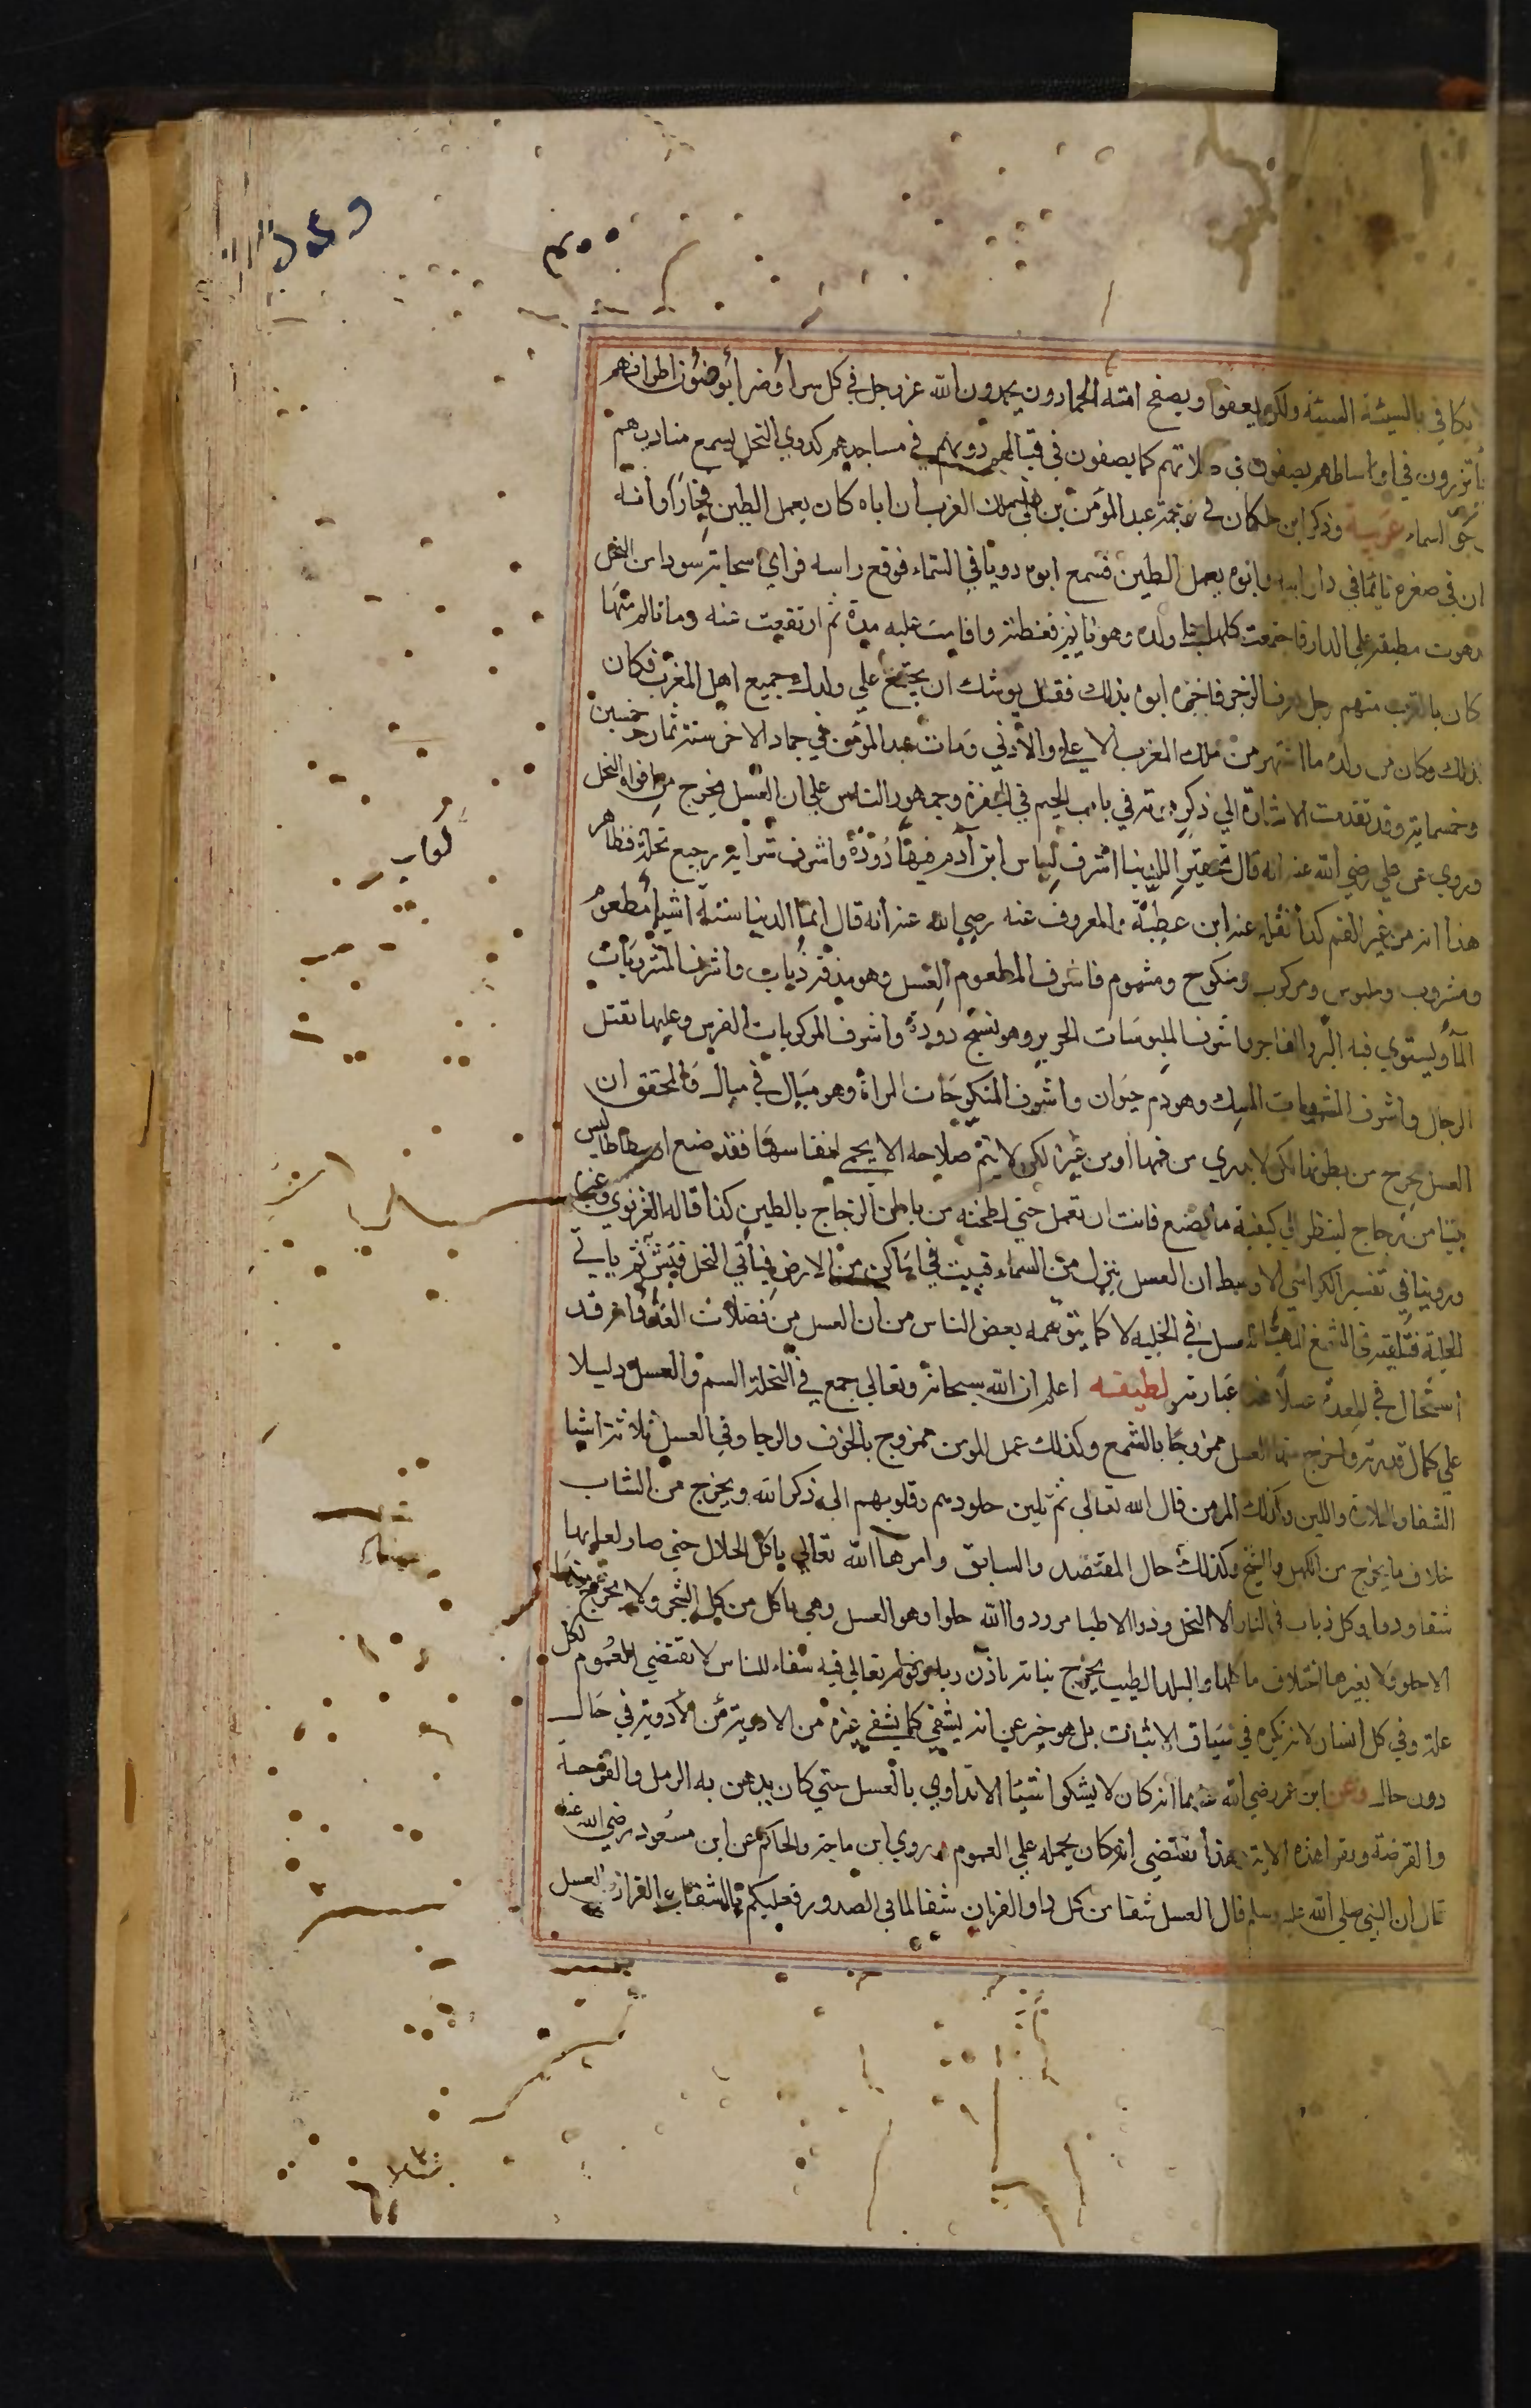 يكافي بالسيئة السيئة ولكن يعفوا ويصفح امته الحمادون يحمدون الله عز وجل في كل سرا وضرا يوضئون اطرافهم
يأتزرون في اوساطهم يصفون في صلاتهم كما يصفون في قتالهم دويهم في مساجدهم كدوي النحل يسمع مناديهم
جو السماء غريبة وذكر ابن خلكان في ترجمة عبد المؤمن بن علي ملك الغرب ان اباه كان يعمل الطين فخارا وانه
ان في صغره نائما في دار ابيه وابوه يعمل الطين فسمع ابوه دويا في السماء فرفع راسه فراي سحابة سودا من النحل
هوت مطبقة علي الدار فاجتمعت كلها علي ولده وهو نايم فغطته واقامت عليه مدة ثم ارتفعت عنه وما تالم منها
كان بالقرب منهم رجل يعرف الزجر فاخبره ابوه بذلك فقال يوشك ان يجتمع علي ولدك جميع اهل المغرب فكان
كذلك وكان من ولده ما اشتهر من ملك المغرب الاعلي والادني ومات عبد المؤمن في جماد الاخر سنة ثمان وخمسين
وخمسماية وقد تقدمت الاشارة الي ذكره في باب الجيم في الجفرة وجمهور الناس علي ان العسل يخرج من افواه النحل
وروي عن علي رضي الله عنه انه قال تحقيرا للدنيا اشرف لباس ابن آدم فيها دودة واشرف شرابه رجيع نحلة فظاهر
هذا انه من غير الفم كذا نقله عنه ابن عطية والمعروف عنه رضي الله عنه انه قال انما الدنيا ستة اشيا مطعوم
ومشروب وملبوس ومركوب ومنكوح ومشموم فاشرف المطعوم العسل وهو مذقة ذباب واشرف المشروبات
الماء ويستوي فيه البر والفاجر واشرف الملبوسات الحرير وهو نسج دودة واشرف المركوبات الفرس وعليها تقتل
الرجال واشرف المشمومات المسك وهو دم حيوان واشرف المنكوحات المراة وهو مبال في مبال والمحقق ان
العسل يخرج من بطونها لكن لا يدري من فمها او من غيره لكن لا يتم صلاحه الا بحمي انفاسها فقد صنع ارسطاطاليس
بيتا من زجاج لينظر الي كيفية ما تصنع فابت ان تعمل حتي لطخته من باطن الزجاج بالطين كذا قاله الغزنوي وغيره
وروينا في تفسير الكواشي الاوسط ان العسل ينزل من السماء فيثبت في اماكن من الارض فيأتي النحل فيشربه ثم ياتي
الخلية فتلقيه في الشمع المهيا للعسل في الخلية لا كما يتوهمه بعض الناس من ان العسل من فضلات الغذا وانه قد
استحال في المعدة عسلا هذه عبارته لطيفة اعلم ان الله سبحانه وتعالي جمع في النحلة السم والعسل دليلا
علي كمال قدرته واخرج منها العسل ممزوجا بالشمع وكذلك عمل المومن ممزوج بالخوف والرجا وفي العسل ثلاثة اشيا
الشفا والحلاوة واللين وكذلك المومن قال الله تعالي ثم تلين جلودهم وقلوبهم الي ذكر الله ويخرج من الشاب
خلاف ما يخرج من الكهل والشيخ وكذلك حال المقتصد والسابق وامرها الله تعالي باكل الحلال حتي صار لعابها
شفا ودوا وكل ذباب في النار الا النحل ودوا الاطبا مر ودوا الله حلوا وهو العسل وهي تاكل من كل الشجر ولا يخرج منها
الا حلو ولا يغيرها اختلاف ماكلها والبلد الطيب يخرج نباته باذن ربه وقوله تعالي فيه شفاء للناس لا تقتضي العموم لكل
علة وفي كل انسان لانه نكرة في سياق الاثبات بل هو خبر عن انه يشفي كما يشفي غيره من الادوية من الادوية في حال
دون حال وعن ابن عمر رضي الله عنهما انه كان لا يشكوا شيئا الا تداوي بالعسل حتي كان يدهن به الرمل والقرحة
والقرصة ويقرا هذه الاية وهذا يقتضي انه كان يحمله علي العموم وروي ابن ماجة والحاكم عن ابن مسعود رضي الله عنه
قال ان النبي صلي الله عليه وسلم قال العسل شفا من كل دا والقران شفا لما في الصدور فعليكم بالشفاين القران والعسل